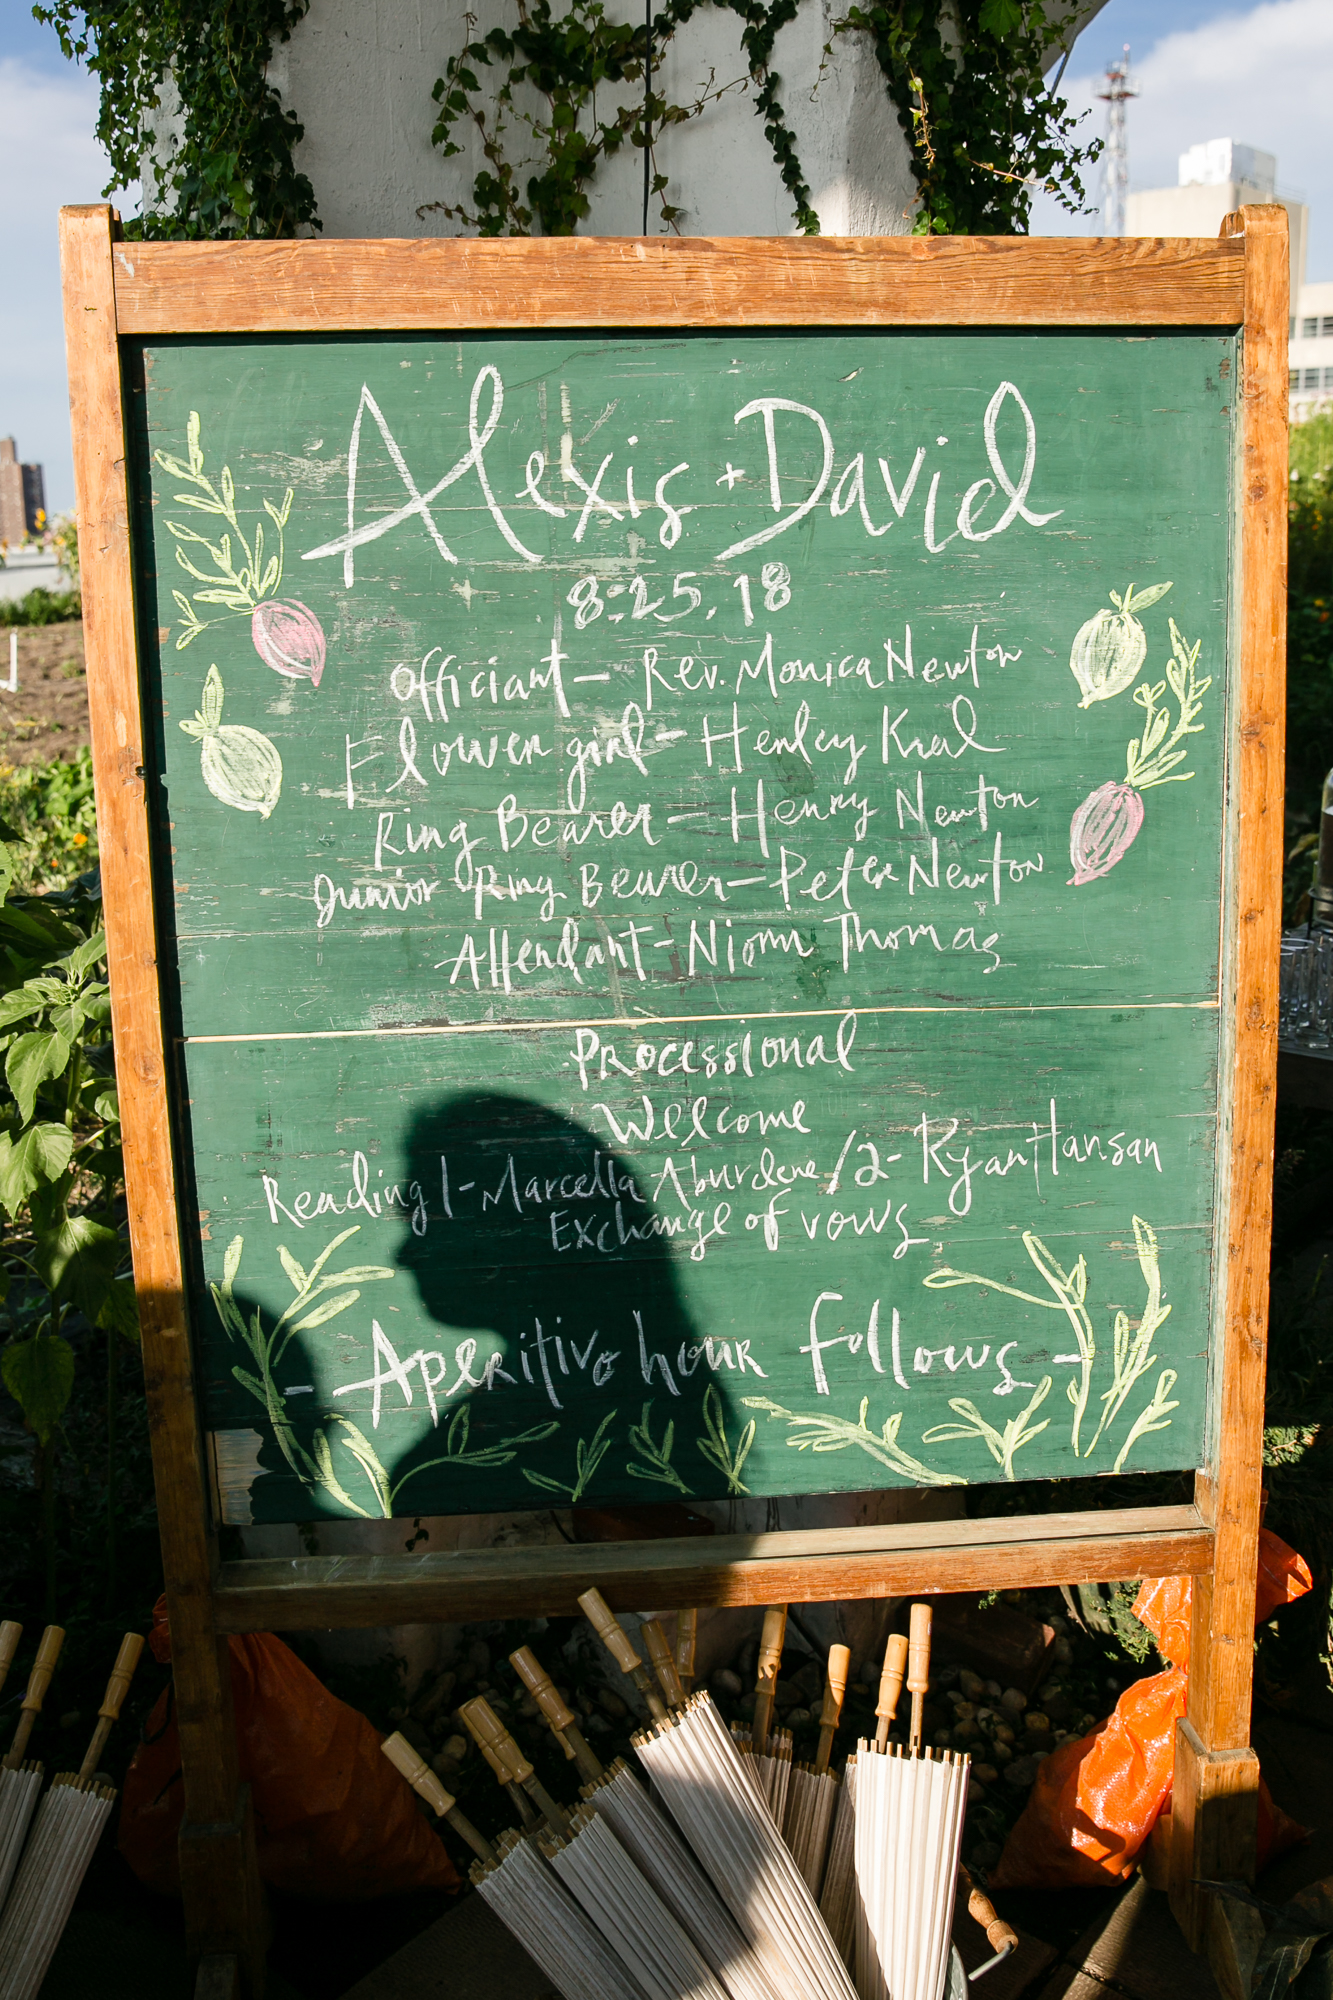 Alexis + David
8.25.18
Officiant - Rev. Monica Newton
Flower girl - Henley Kral
Ring Bearer - Henry Newton
Junior Ring Bearer - Peter Newton
Attendant - Thomas
Processional
Welcome
Reading 1 - Marcella Aburdene / 2 - Ryan Hansan
Exchange of vows
- Aperitivo hour follows -